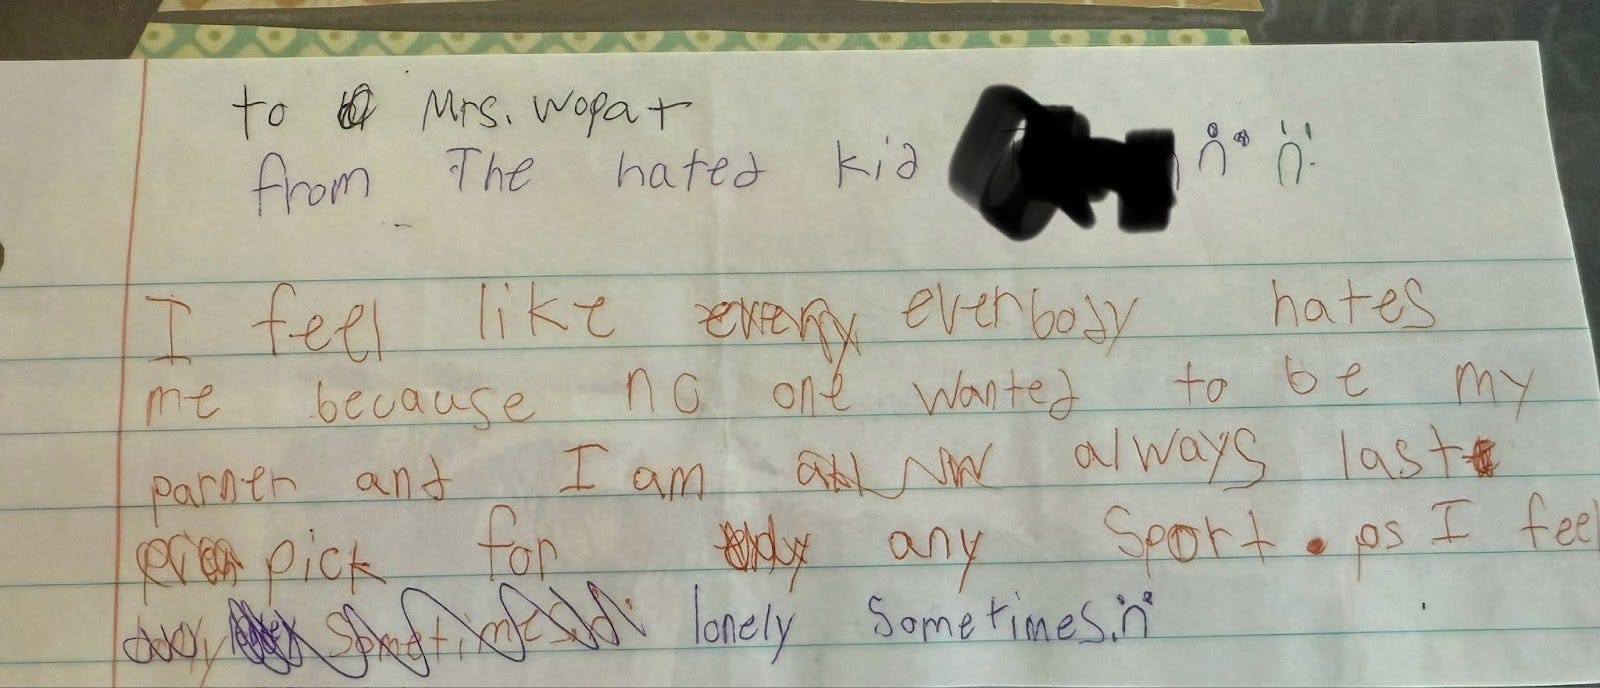 to Mrs. Wopat
from The hated kid
I feel like everbody hates
me because no one wanted to be my
parner and I am always last
pick for any sport. ps I feel
lonely sometimes.